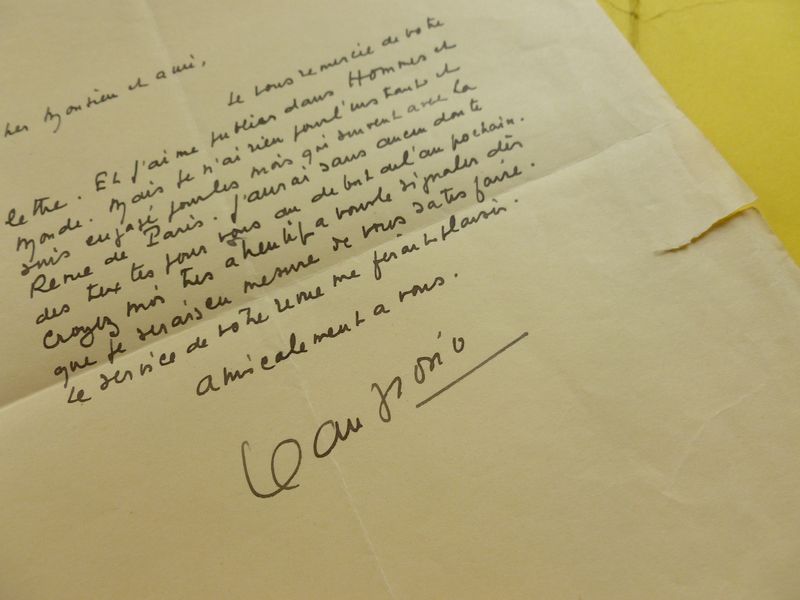 cher Monsieur et ami,
Je vous remercie de votre
lettre. Et j'aime publier dans Hommes et
Monde. Mais je n'ai rien pour l'instant et
suis engagé pour les mois qui suivent avec la
Revue de Paris. J'aurai sans aucun doute
des textes pour vous au début de l'an prochain.
Croyez moi très attentif a vous le signaler dès
que je serais en mesure de vous satisfaire.
Le service de votre revue me ferait plaisir.
amicalement a vous.
Jean Giono